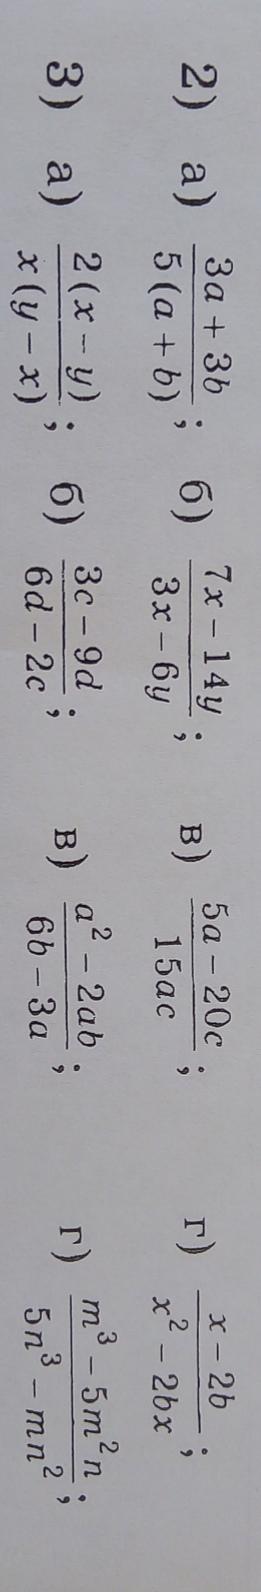 2) а) (3a + 3b)/(5(a + b)); б) (7x − 14y)/(3x − 6y); в) (5a − 20c)/(15ac); г) (x − 2b)/(x² − 2bx);
3) а) (2(x − y))/(x(y − x)); б) (3c − 9d)/(6d − 2c); в) (a² − 2ab)/(6b − 3a); г) (m³ − 5m²n)/(5n³ − mn²);